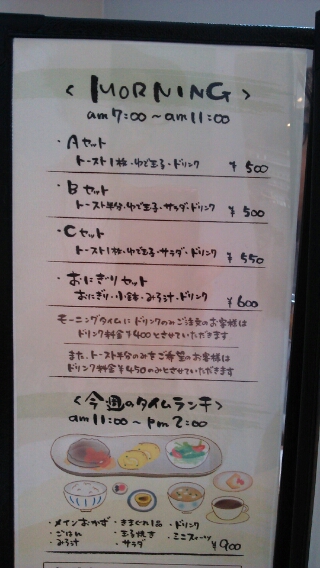 < MORNING >
am 7:00 ~ am 11:00
・Aセット
トースト1枚・ゆで玉子・ドリンク ¥500
・Bセット
トースト半分・ゆで玉子・サラダ・ドリンク ¥500
・Cセット
トースト1枚・ゆで玉子・サラダ・ドリンク ¥550
・おにぎりセット
おにぎり・小鉢・みそ汁・ドリンク ¥600
モーニングタイムにドリンクのみご注文のお客様は
ドリンク料金¥400とさせていただきます
また、トースト半分のみをご希望のお客様は
ドリンク料金¥450のみとさせていただきます
<今週のタイムランチ>
am 11:00 ~ pm 2:00
・メインおかず ・きまぐれ1品 ・ドリンク
・ごはん ・玉子焼き ・ミニスイーツ
・みそ汁 ・サラダ ¥900